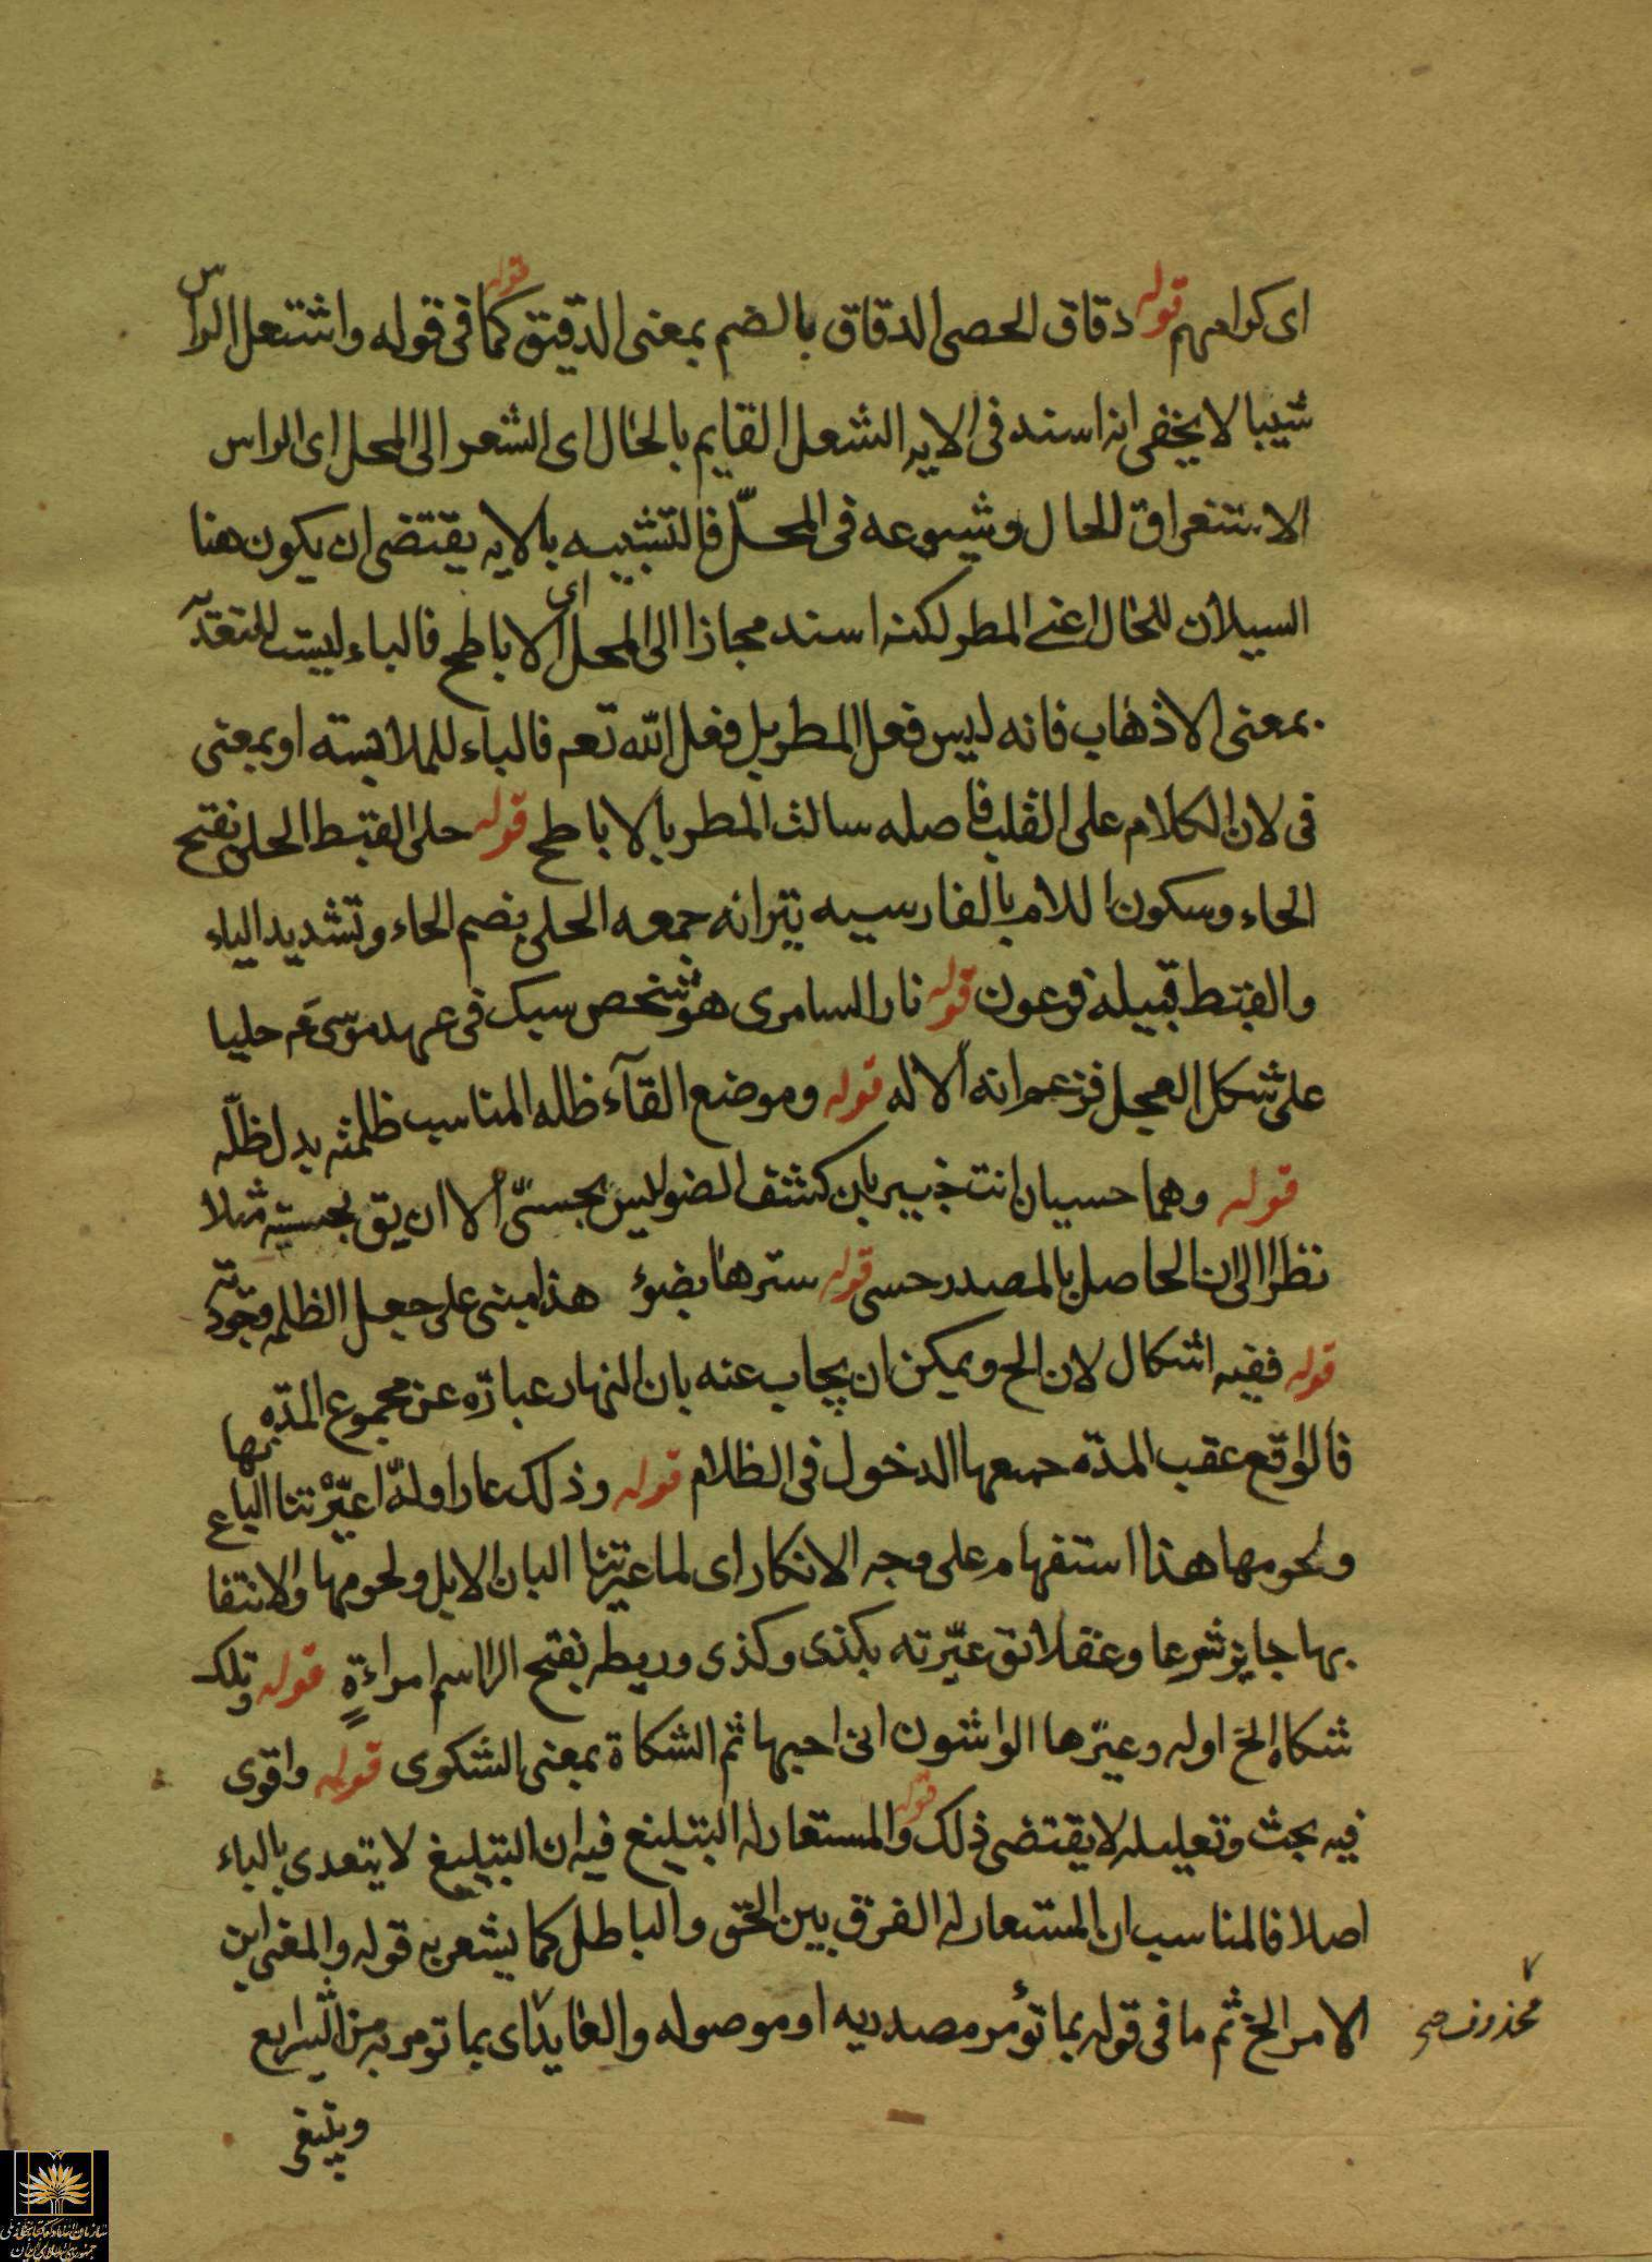 ای کرامهم قوله دقاق الحصی الدقاق بالضم بمعنی الدقیق قوله کما فی قوله واشتعل الراس
شیبا لا یخفی انه اسند فی الایه الشعل القایم بالحال ای الشعر الی المحل ای الراس
الاستغراق للحال وشیوعه فی المحلّ فالتشبیه بالایه یقتضی ان یکون هنا
السیلان للحال اعنی المطر لکنه اسند مجازا الی المحل ای الاباطح فالباء لیست للتعدیه
بمعنی الاذهاب فانه لیس فعل المطر بل فعل الله تعم فالباء للملابسته او بمعنی
فی لان الکلام علی القلب فاصله سالت المطر بالاباطح قوله حلی القبط الحلی بفتح
الحاء وسکون اللام بالفارسیه پیرانه جمعه الحلی بضم الحاء وتشدید الیاء
والقبط قبیله فرعون قوله نار السامری هو شخص سبک فی عهد موسی ع حلیا
علی شکل العجل فزعم انه الاله قوله وموضع القآء ظله المناسب ظلمته بدل ظلّه
قوله وهما حسیان انت خبیر بان کشف الضو لیس بحسیّ الا ان یق بحسیته مثلا
نظرا الی ان الحاصل بالمصدر حسی قوله سترها بضوء هذا مبنی علی جعل الظلمه وجودیّه
قوله ففیه اشکال لان الخ ویمکن ان یجاب عنه بان النهار عبارة عن مجموع المدّه
فالواقع عقب المدّه جمیعها الدخول فی الظلام قوله وذلک عار اولّه اعیّرتنا البانها
ولحومها هذا استفهام علی وجه الانکار ای لما عیرتنا البان الابل ولحومها والانتفاع
بها جایز شرعا وعقلا یق عیّرته بکذی وکذی وریطه بفتح الرا اسم امراءةٍ قوله وتلک
شکاة الخ اوله وعیّرها الواشون انی احبها ثم الشکاة بمعنی الشکوی قوله واقوی
فیه بحث وتعلیله لا یقتضی ذلک قوله والمستعار له التبلیغ فیه ان التبلیغ لا یتعدی بالباء
اصلا فالمناسب ان المستعار له الفرق بین الحق والباطل کما یشعر به قوله والمعنی ابن
الامر الخ ثم ما فی قوله بما تؤمر مصدریه او موصوله والعاید ای بما تومر به من الشرایع
محذوف صح
وینبغی